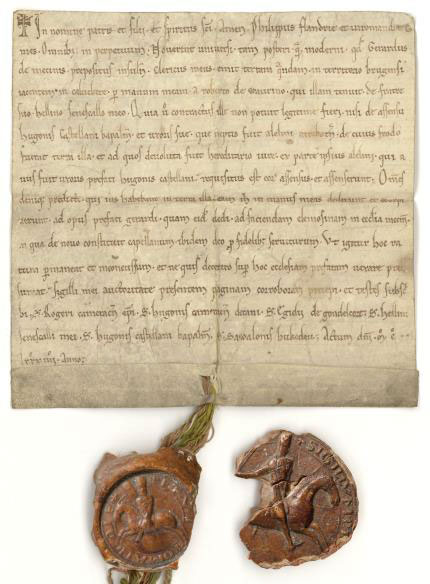 In nomine patris et filii et spiritus sc̄i Amen. Philippus flandrie et uiromandie co
mes. Omnibus in perpetuum. Nouerint uniuersi tam posteri q̄ moderni. qd Gerardus
de mecinis prepositus insulen̄. clericus meus. emit terram quandam in territorio brugensi
iacentem in p manum meam. a roberto de wauerino. qui illam tenuit de fratre
suo hellino senescallo meo. Quia u contractus ille non potuit legitime fieri. nisi de assensu
hugonis castellani bapalm̄. et uxoris sue. que neptis fuit de cuius feodo
fuerat terra illa. et ad quos deuoluta fuit hereditario iure. ex parte ipsius qui a
uus fuit uxoris prefati hugonis castellani. requisitus est eor assensus. et assenserunt. Om̄s
denique predicti. qui ius habebant in terra illa. eam in manus meas
ad opus prefati girardi. quam eidem dedi. ad faciendam elemosinam in ecclia
in qua de nouo constituit capellanum ibidem deo p fidelib seruiturum. Ut igitur hoc ra
tum pmaneat et inconcussum. et ne quis decetero sup hoc ecclesiam prefatam uexare pre
sumat. sigilli mei auctoritate presentem paginam corroborari precepi. et testes subscri
bi. S. Rogeri camerac̄ ep̄i. S. hugonis camerac̄ decani. S. Egidii de S. hellini
senescalli mei. S. hugonis castellani bapalm̄. S. Actum dn̄i. M̊. C̊
lxxx anno.
SIGILLVM